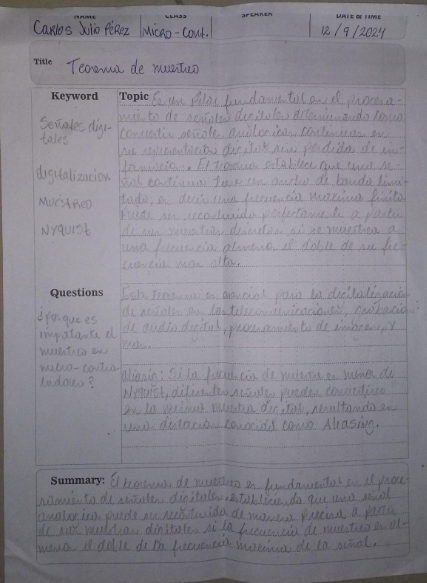 NAME CLASS SPEAKER DATE & TIME
Carlos Julio Pérez Micro-Cont. 12/9/2024
Title Teorema de muestreo
Keyword
Señales digi-
tales
digitalización
Muestreo
NYQUIST
Topic Es un pilar fundamental en el procesa-
miento de señales digitales determinando como
convertir señale analogicas continuas en
su representación digital sin perdidas de in-
formación. El teorema establece que una se-
ñal continua tiene un ancho de banda limi-
tado, es decir una frecuencia maxima finita
Puede ser reconstruida perfectamente a partir
de sus muestras discretas si se muestrea a
una frecuencia almeno el doble de su fre-
cuencia mas alta.
Questions
¿Por que es
importante el
muestreo en
micro-contro
ladores?
Este teorema es esencial para la digitalización
de señales en las telecomunicaciones, grabacion
de audio digital, procesamiento de imagenes, y
mas.
Si la frecuencia de muestreo es menor de
NYQUIST, diferentes señales pueden convertirse
en la misma muestra digital, resultando en
una conocida como Aleasing.
Summary: El teorema de muestreo es fundamental en el proce-
samiento de señales digitales, estableciendo que una señal
analogica puede ser reconstruida de manera precisa a partir
de sus muestras digitales si la frecuencia de muestreo es al-
menos el doble de la frecuencia maxima de la señal.